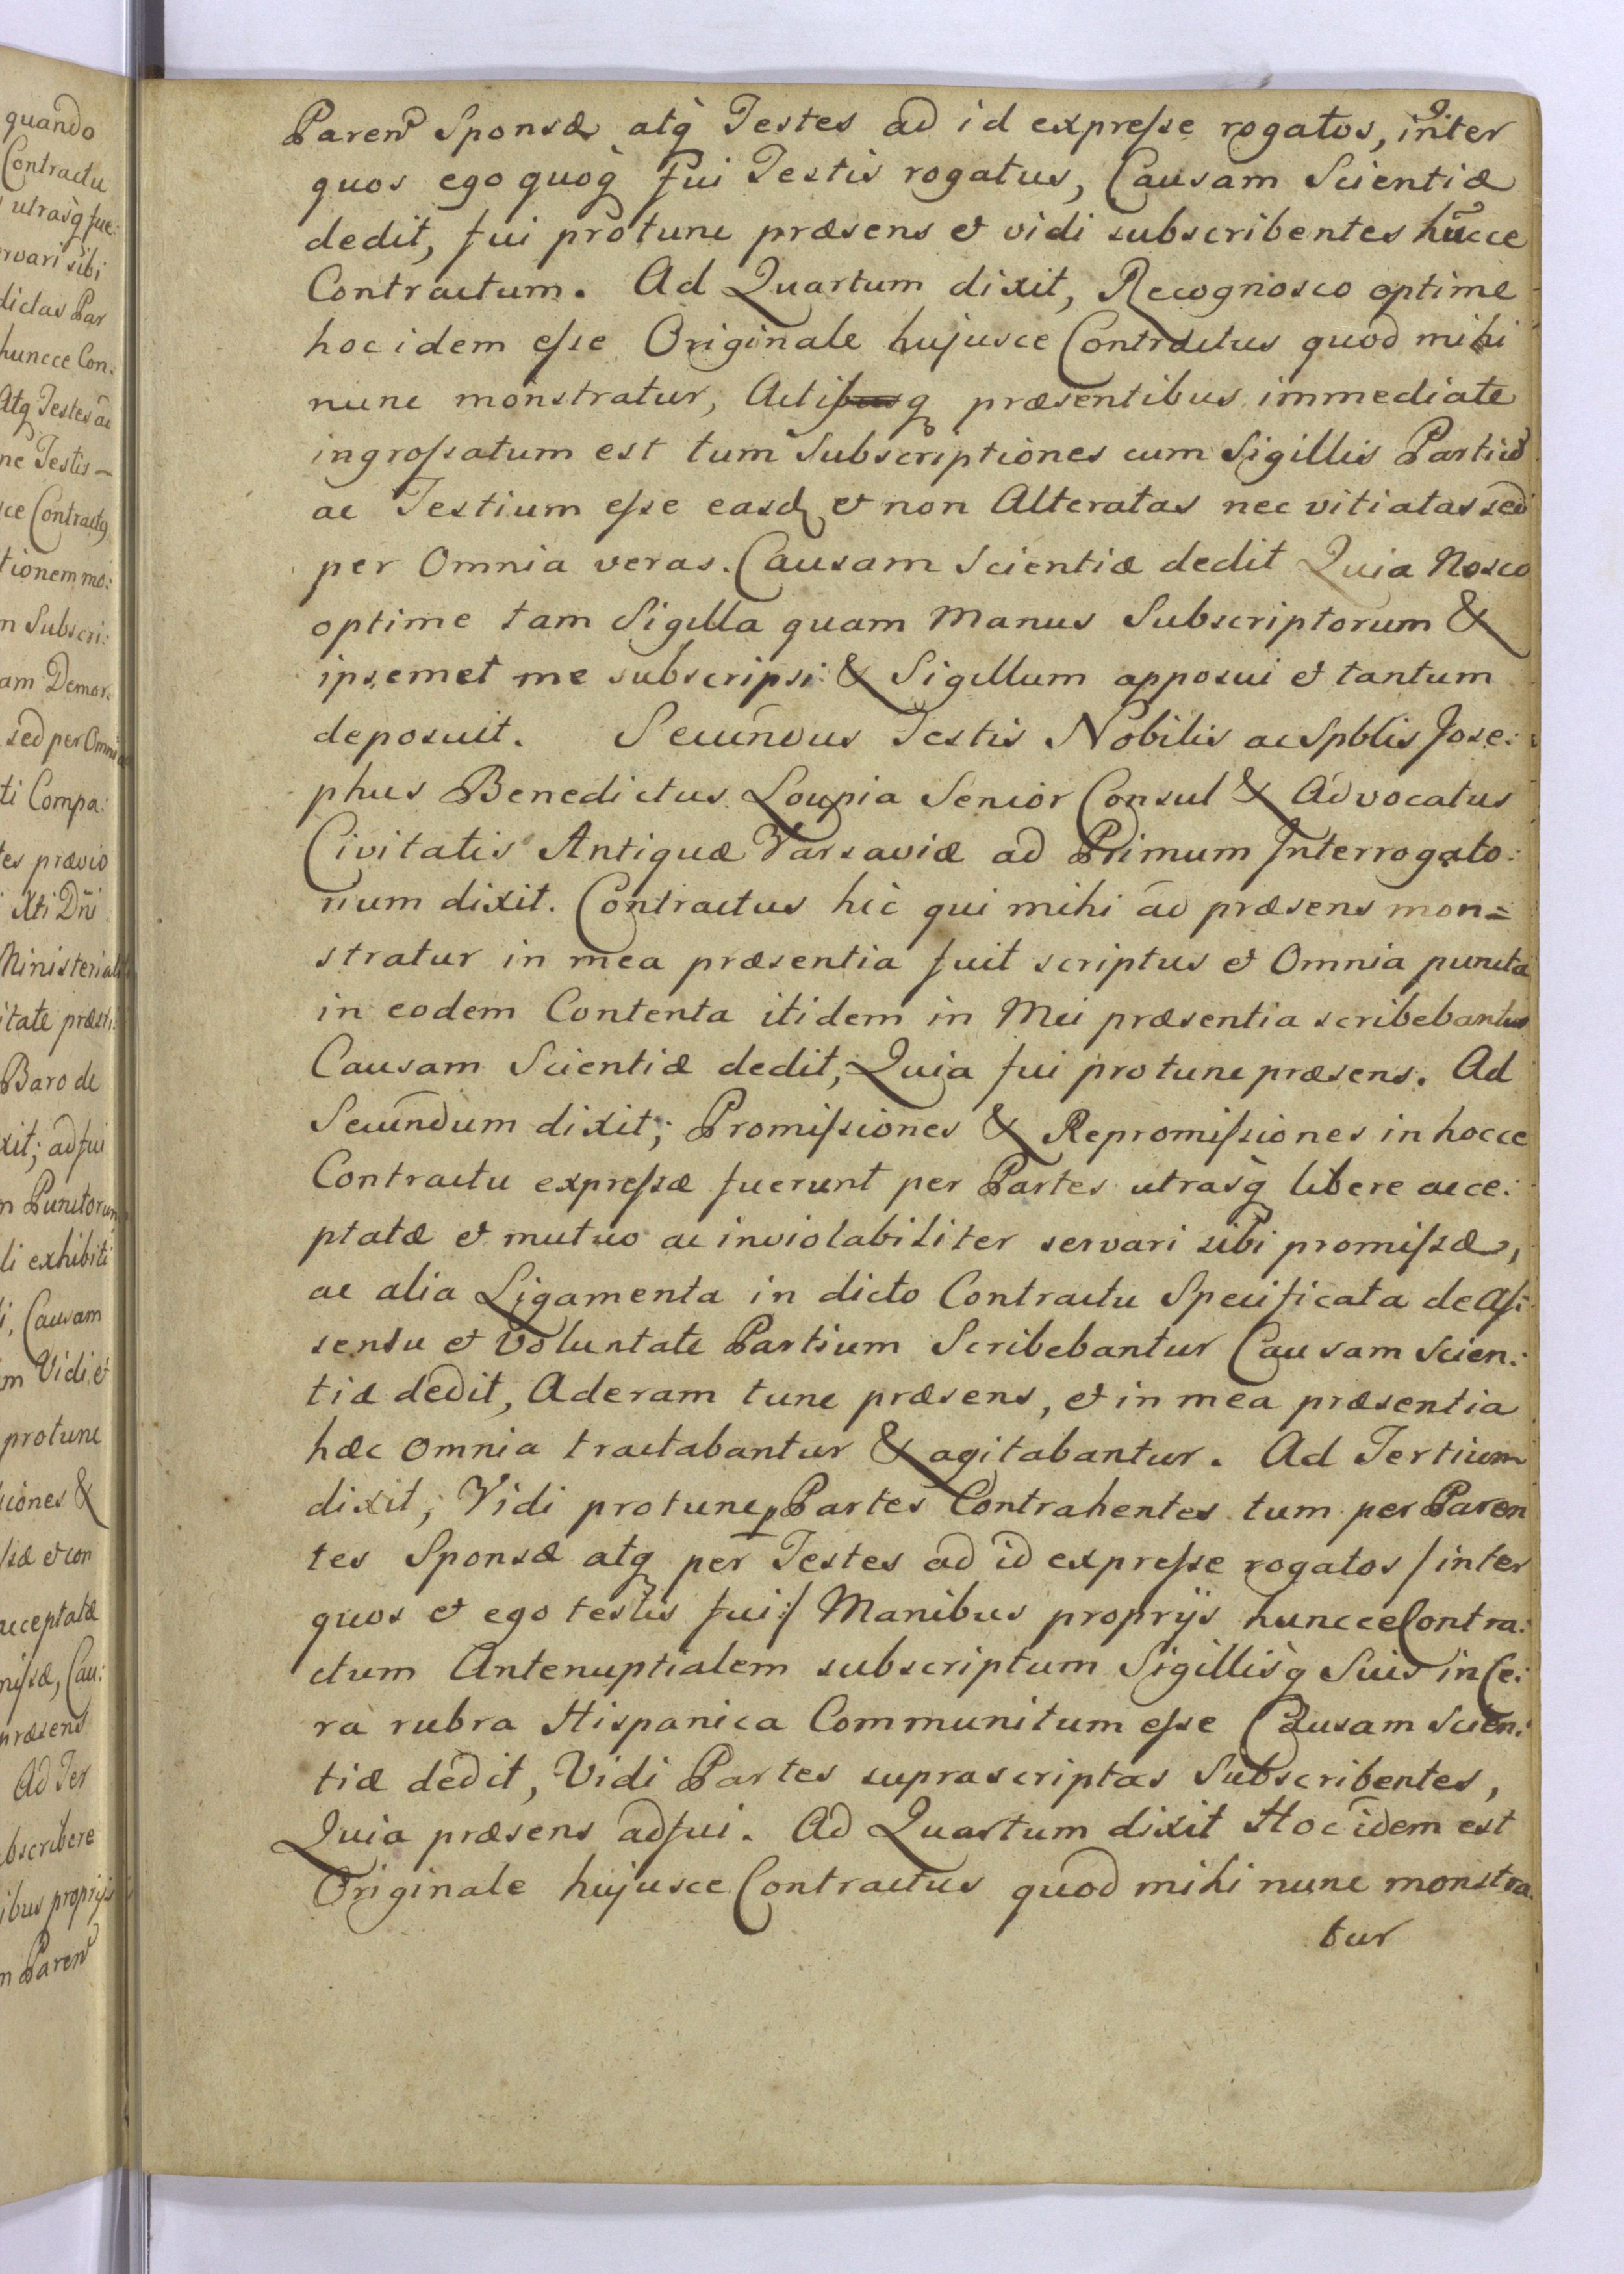 quando
Contractu
utrasq fue:
rvari sibi
dictas Par
huncce Con:
Atq Testes ad
ne Testis –
sce Contractus
tionem mo:
m Subscri:
am Demor:
sed per Omnia
ti Compa:
tes prævio
Xti Dñi
Ministerial
itate præsti
Baro de
xit; adfui
m Punctorum
li exhibiti
i, Causam
m Vidi et
protunc
siones &
ſsæ et con
acceptatæ
miſsæ, Cau:
præsens
Ad Ter
bscribere
ibus proprijs
m Paren
Paren Sponsæ atq Testes ad id expreſse rogatos, inter
quos ego quoq fui Testis rogatus, Causam Scientiæ
dedit, fui protunc præsens et vidi subscribentes hũcce
Contractum. Ad Quartum dixit, Recognosco optime
hoc idem eſse Originale hujusce Contractus quod mihi
nunc monstratur, Actisq præsentibus immediate
ingroſsatum est tum Subscriptiones cum Sigillis Partiũ
ac Testium eſse easd et non Alteratas nec vitiatas sed
per Omnia veras. Causam Scientiæ dedit Quia Nosco
optime tam Sigilla quam Manus Subscriptorum &
ipsemet me subscripsi & Sigillum apposui et tantum
deposuit. Secundus Testis Nobilis ac Spblis Jose:
phus Benedictus Loupia Senior Consul & Advocatus
Civitatis Antiquæ Varsaviæ ad Primum Interrogato:
rium dixit. Contractus hic qui mihi ad præsens mon=
stratur in mea præsentia fuit scriptus et Omnia puncta
in eodem Contenta itidem in Mei præsentia scribebantur
Causam Scientiæ dedit, Quia fui protunc præsens. Ad
Secundum dixit; Promiſsiones & Repromiſsiones in hocce
Contractu expreſsæ fuerunt per Partes utrasq libere acce:
ptatæ et mutuo ac inviolabiliter servari sibi promiſsæ,
ac alia Ligamenta in dicto Contractu Specificata de Aſ:
sensu et Voluntate Partium Scribebantur Causam Scien:
tiæ dedit, Aderam tunc præsens, et in mea præsentia
hæc Omnia tractabantur & agitabantur. Ad Tertium
dixit; Vidi protunc p Partes Contrahentes tum per Paren
tes Sponsæ atq per Testes ad id expreſse rogatos / inter
quos et ego testis fui :/ Manibus proprijs huncce Contra:
ctum Antenuptialem subscriptum Sigillisq Suis in Ce:
ra rubra Hispanica Communitum eſse Causam Scien:
tiæ dedit, Vidi Partes suprascriptas Subscribentes,
Quia præsens adfui. Ad Quartum dixit Hoc idem est
Originale hujusce Contractus quod mihi nunc monstra
tur